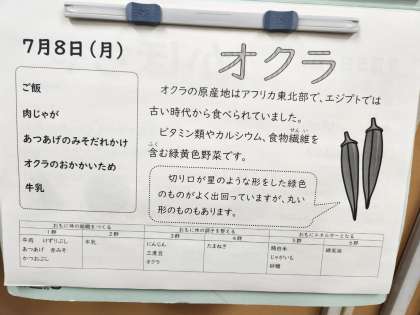 7月8日(月)
オクラ
ご飯
肉じゃが
あつあげのみそだれかけ
オクラのおかかいため
牛乳
オクラの原産地はアフリカ東北部で、エジプトでは
古い時代から食べられていました。
ビタミン類やカルシウム、食物繊維を
含む緑黄色野菜です。
切り口が星のような形をした緑色
のものがよく出回っていますが、丸い
形のものもあります。
おもに体の組織をつくる おもに体の調子を整える おもにエネルギーとなる
1群 2群 3群 4群 5群 6群
牛肉 けずりぶし 牛乳 にんじん たまねぎ 精白米
あつあげ 赤みそ 三度豆 じゃがいも
かつおぶし オクラ 砂糖